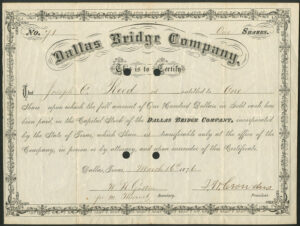 No. 71 One SHARES.
Dallas Bridge Company,
This is to Certify
That Joseph C. Reed entitled to One
Share upon which the full amount of One Hundred Dollars in Gold each has
been paid, in the Capital Stock of the DALLAS BRIDGE COMPANY, incorporated
by the State of Texas, which Share is transferable only at the office of the
Company, in person or by attorney, and when surrender of this Certificate.
Dallas, Texas, March 1876
W. H.
Secretary. President.